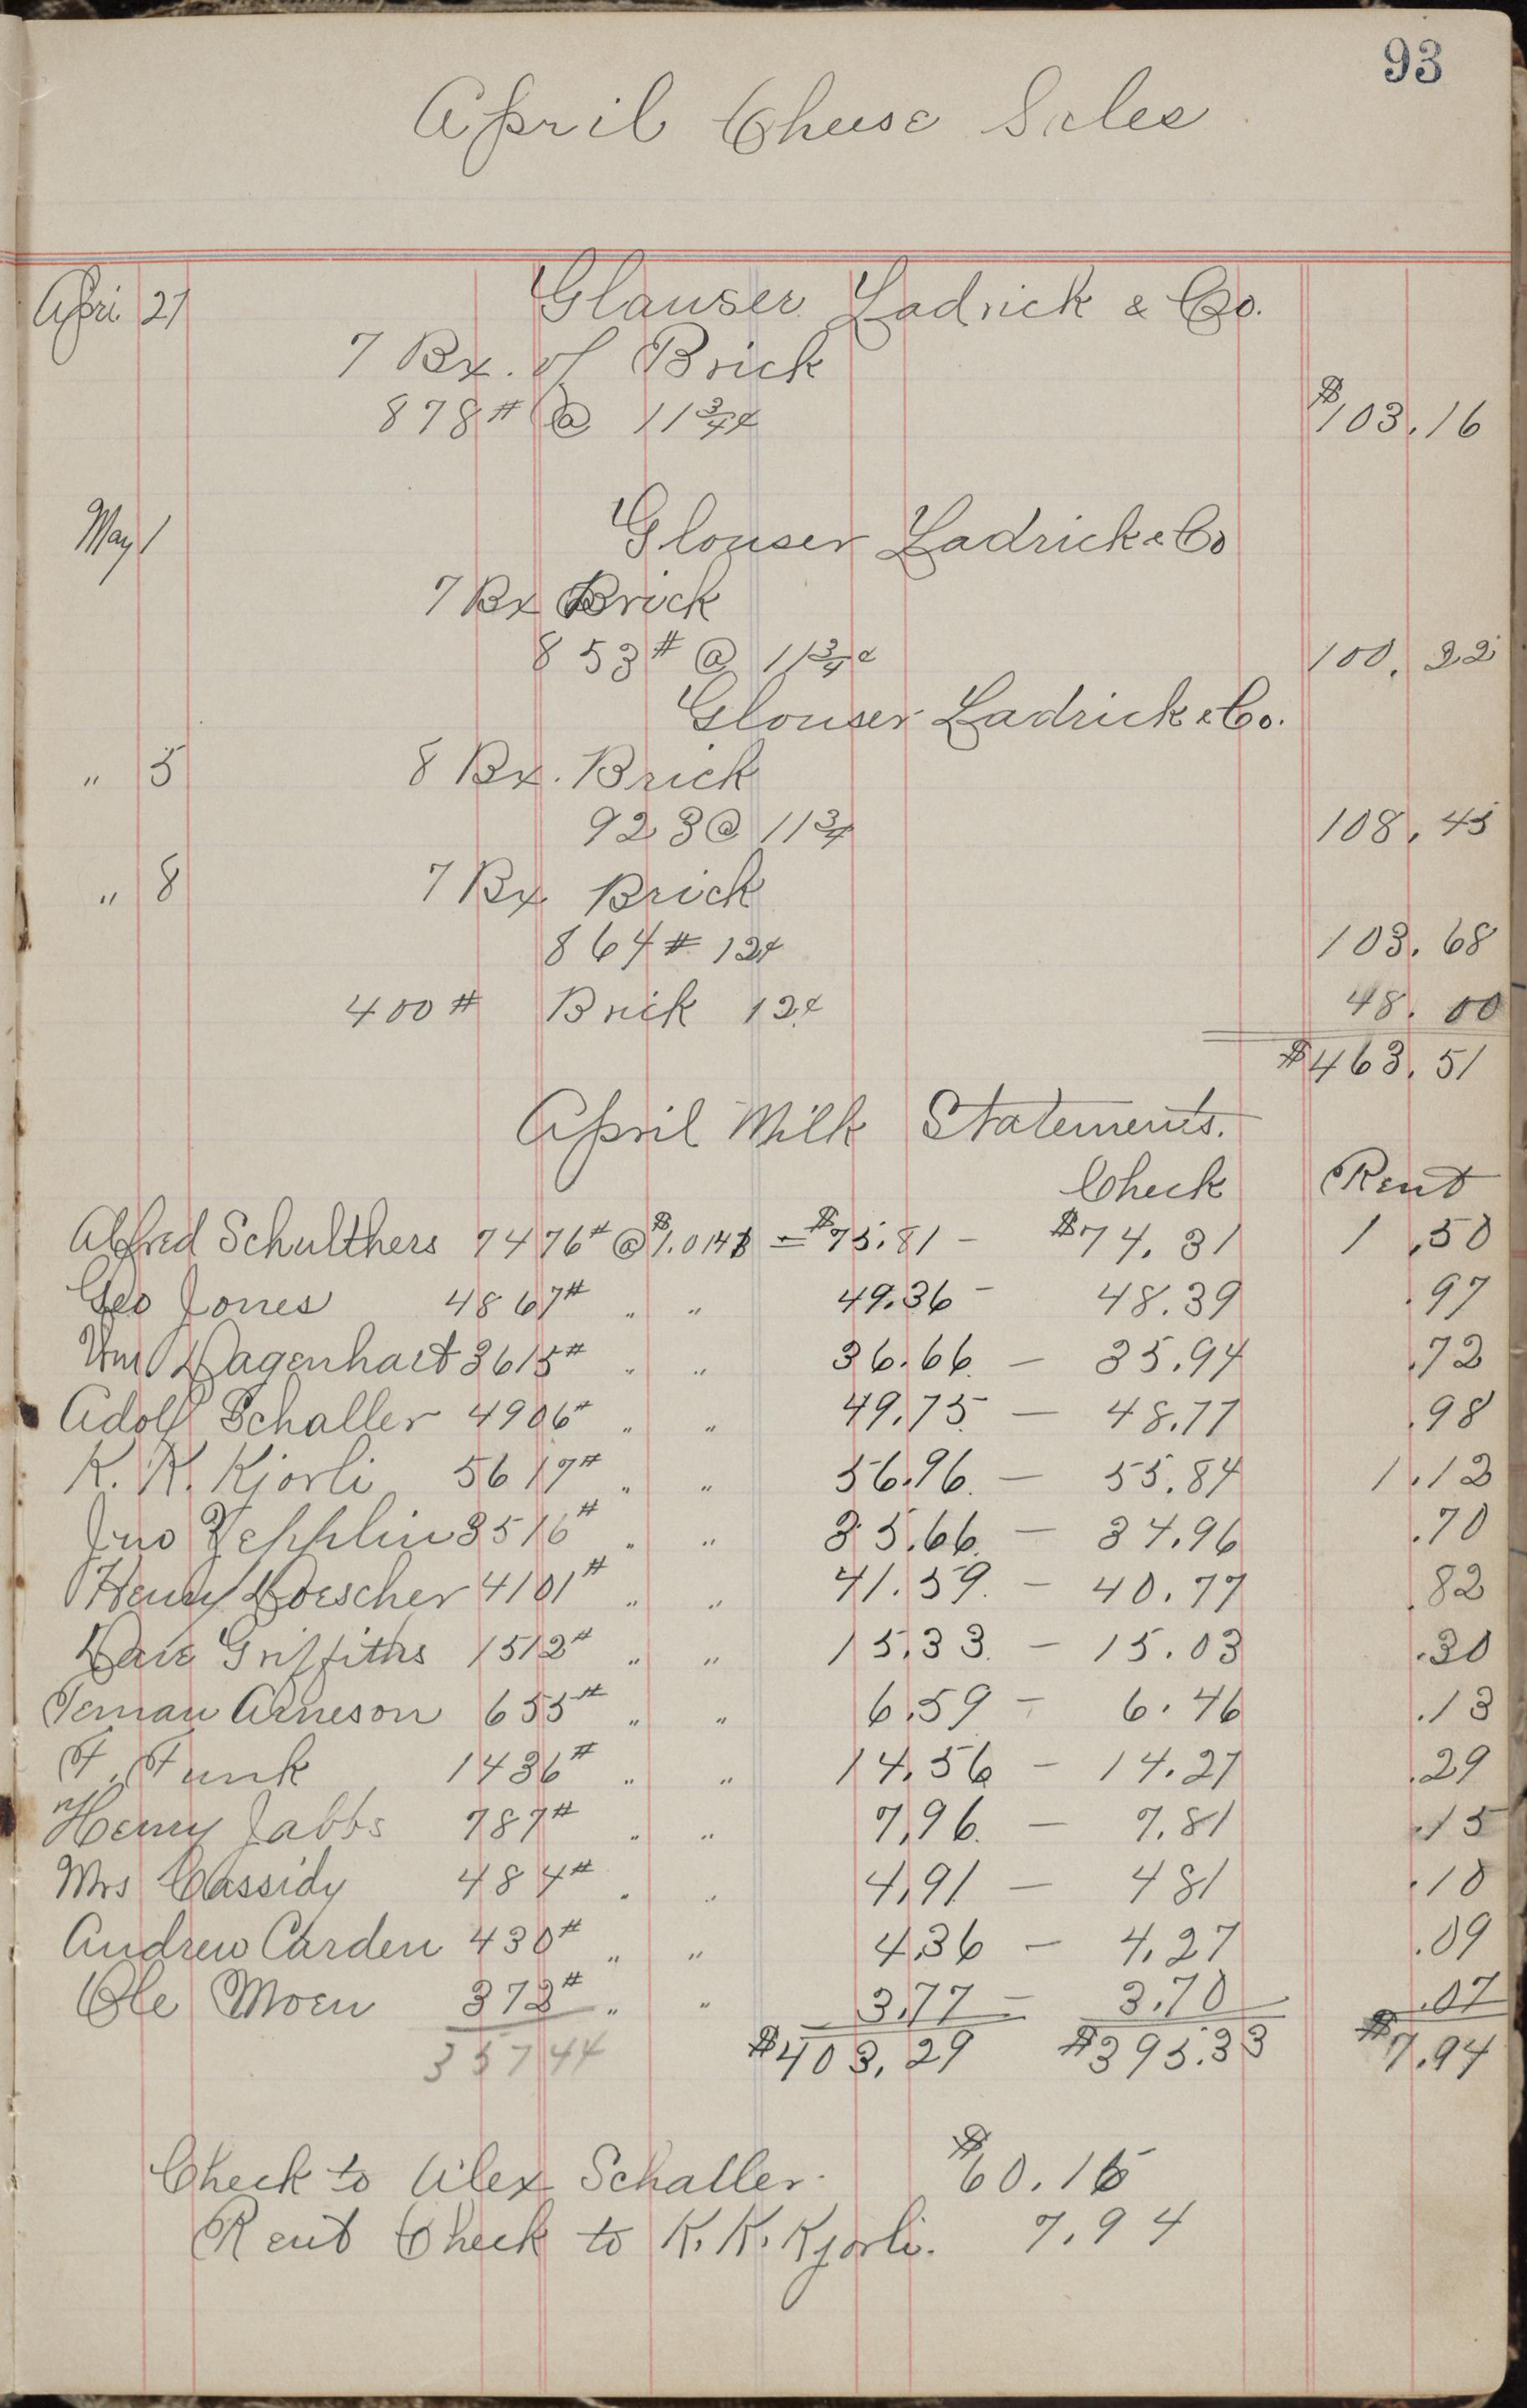 93
April Cheese Sales
Apri 27 Glauser Ladrick & Co.
7 Bx. of Brick
878# @ 11 3/4¢ $103.16
May 1 Glouser Ladrick & Co
7 Bx Brick
853# @ 11 3/4¢ 100.22
Glouser Ladrick & Co.
" 5 8 Bx. Brick
923 @ 11 3/4 108.45
" 8 7 Bx Brick
864# 12¢ 103.68
400# Brick 12¢ 48.00
$463.51
April Milk Statements.
Check Rent
Alfred Schulthers 7476# @ $1.0143 = $75.81 - $74.31 1.50
Geo Jones 4867# " " 49.36 - 48.39 .97
Wm Dagenhart 3615# " " 36.66 - 35.94 .72
Adolf Schaller 4906# " " 49.75 - 48.77 .98
K. K. Kjorli 5617# " " 56.96 - 55.84 1.12
Jno Zepplin 3516# " " 35.66 - 34.96 .70
Henry Doescher 4101# " " 41.59 - 40.77 .82
Dave Griffiths 1512# " " 15.33 - 15.03 .30
Teman Arneson 655# " " 6.59 - 6.46 .13
F. Funk 1436# " " 14.56 - 14.27 .29
Henry Jabbs 787# " " 7.96 - 7.81 .15
Mrs Cassidy 484# " " 4.91 - 481 .10
Andrew Carden 430# " " 4.36 - 4.27 .09
Ole Moen 372# " " 3.77 - 3.70 .07
35744 $403.29 $395.33 $7.94
Check to Alex Schaller. $60.16
Rent Check to K. K. Kjorli. 7.94